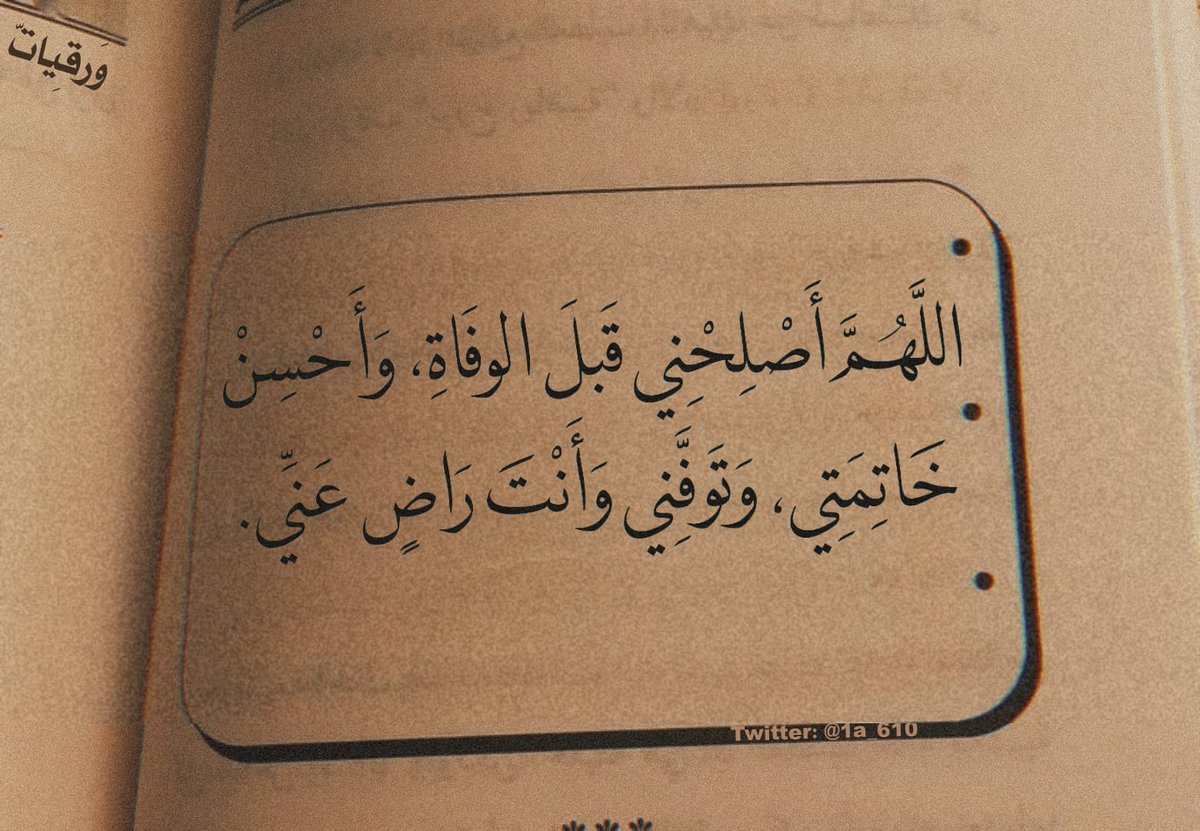 وَرقِيات
اللَّهُمَّ أَصْلِحْنِي قَبلَ الوفَاةِ، وَأَحْسِنْ
خَاتِمَتِي، وَتَوَفَّنِي وَأَنْتَ رَاضٍ عَنِّي.
Twitter: @1a_610